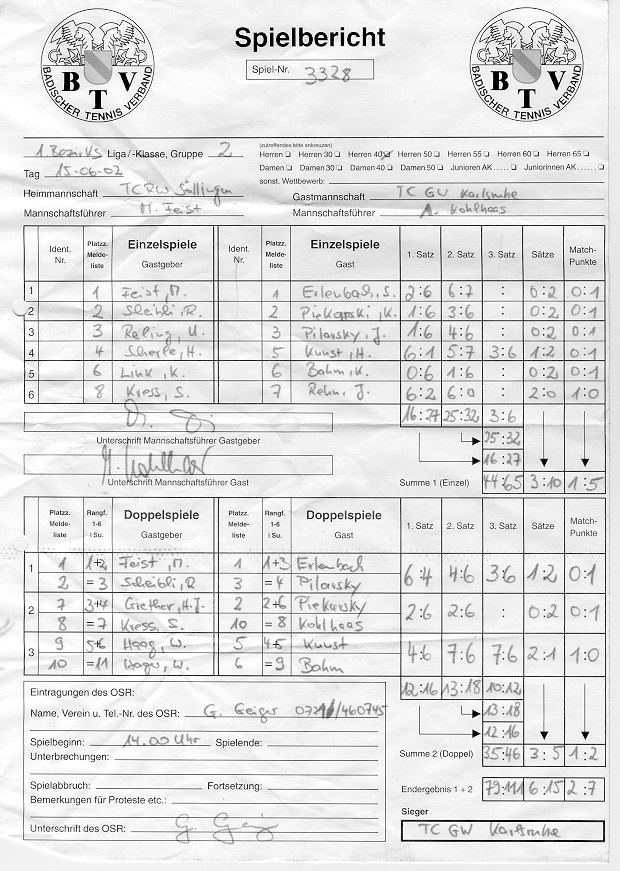 BADISCHER TENNIS VERBAND
BTV
Spielbericht
BADISCHER TENNIS VERBAND
BTV
Spiel-Nr. 3328
(zutreffendes bitte ankreuzen)
1. Bezirks Liga/-Klasse, Gruppe 2 Herren Herren 30 Herren 40 Herren 50 Herren 55 Herren 60 Herren 65
Tag 15-06-02 Damen Damen 30 Damen 40 Damen 50 Junioren AK..... Juniorinnen AK.....
sonst. Wettbewerb:
Heimmannschaft TCRW Söllingen Gastmannschaft TC GW Karlsruhe
Mannschaftsführer M. Feist Mannschaftsführer A. Kohlhaas
Ident. Nr. Platzz. Melde-liste Einzelspiele Gastgeber Ident. Nr. Platzz. Melde-liste Einzelspiele Gast 1. Satz 2. Satz 3. Satz Sätze Match-Punkte
1 1 Feist, M. 1 Erlenbach, S. 2:6 6:7 : 0:2 0:1
2 2 Sheibli, R. 2 Piekarski, K. 1:6 3:6 : 0:2 0:1
3 3 Reling, U. 3 Pilarsky, J. 1:6 4:6 : 0:2 0:1
4 4 Scherle, H. 5 Kunst, H. 6:1 5:7 3:6 1:2 0:1
5 6 Link, K. 6 Bohm, K. 0:6 1:6 : 0:2 0:1
6 8 Kress, S. 7 Rehn, J. 6:2 6:0 : 2:0 1:0
16:27 25:32 3:6
Unterschrift Mannschaftsführer Gastgeber 25:32
16:27
Unterschrift Mannschaftsführer Gast Summe 1 (Einzel) 44:65 3:10 1:5
Platzz. Melde-liste Rangf. 1-6 I Su. Doppelspiele Gastgeber Platzz. Melde-liste Rangf. 1-6 I Su. Doppelspiele Gast 1. Satz 2. Satz 3. Satz Sätze Match-Punkte
1 1 1+2 Feist, M. 1 1+3 Erlenbach 6:4 4:6 3:6 1:2 0:1
2 =3 Scheibli, R 3 =4 Pilarsky
2 7 3+4 Grether, H.J. 2 2+6 Piekarsky 2:6 2:6 : 0:2 0:1
8 =7 Kress, S. 10 =8 Kohlhaas
3 9 5+6 Haag, W. 5 4+5 Kunst 4:6 7:6 7:6 2:1 1:0
10 =11 Hager, W. 6 =9 Bohm
12:16 13:18 10:12
Eintragungen des OSR: 13:18
Name, Verein u. Tel.-Nr. des OSR: G. Geiger 0721/460745
12:16
Spielbeginn: 14.00 Uhr Spielende:
Unterbrechungen: Summe 2 (Doppel) 35:46 3:5 1:2
Spielabbruch: Fortsetzung: Endergebnis 1 + 2 79:111 6:15 2:7
Bemerkungen für Proteste etc.:
Sieger
Unterschrift des OSR: G. Geiger TC GW Karlsruhe